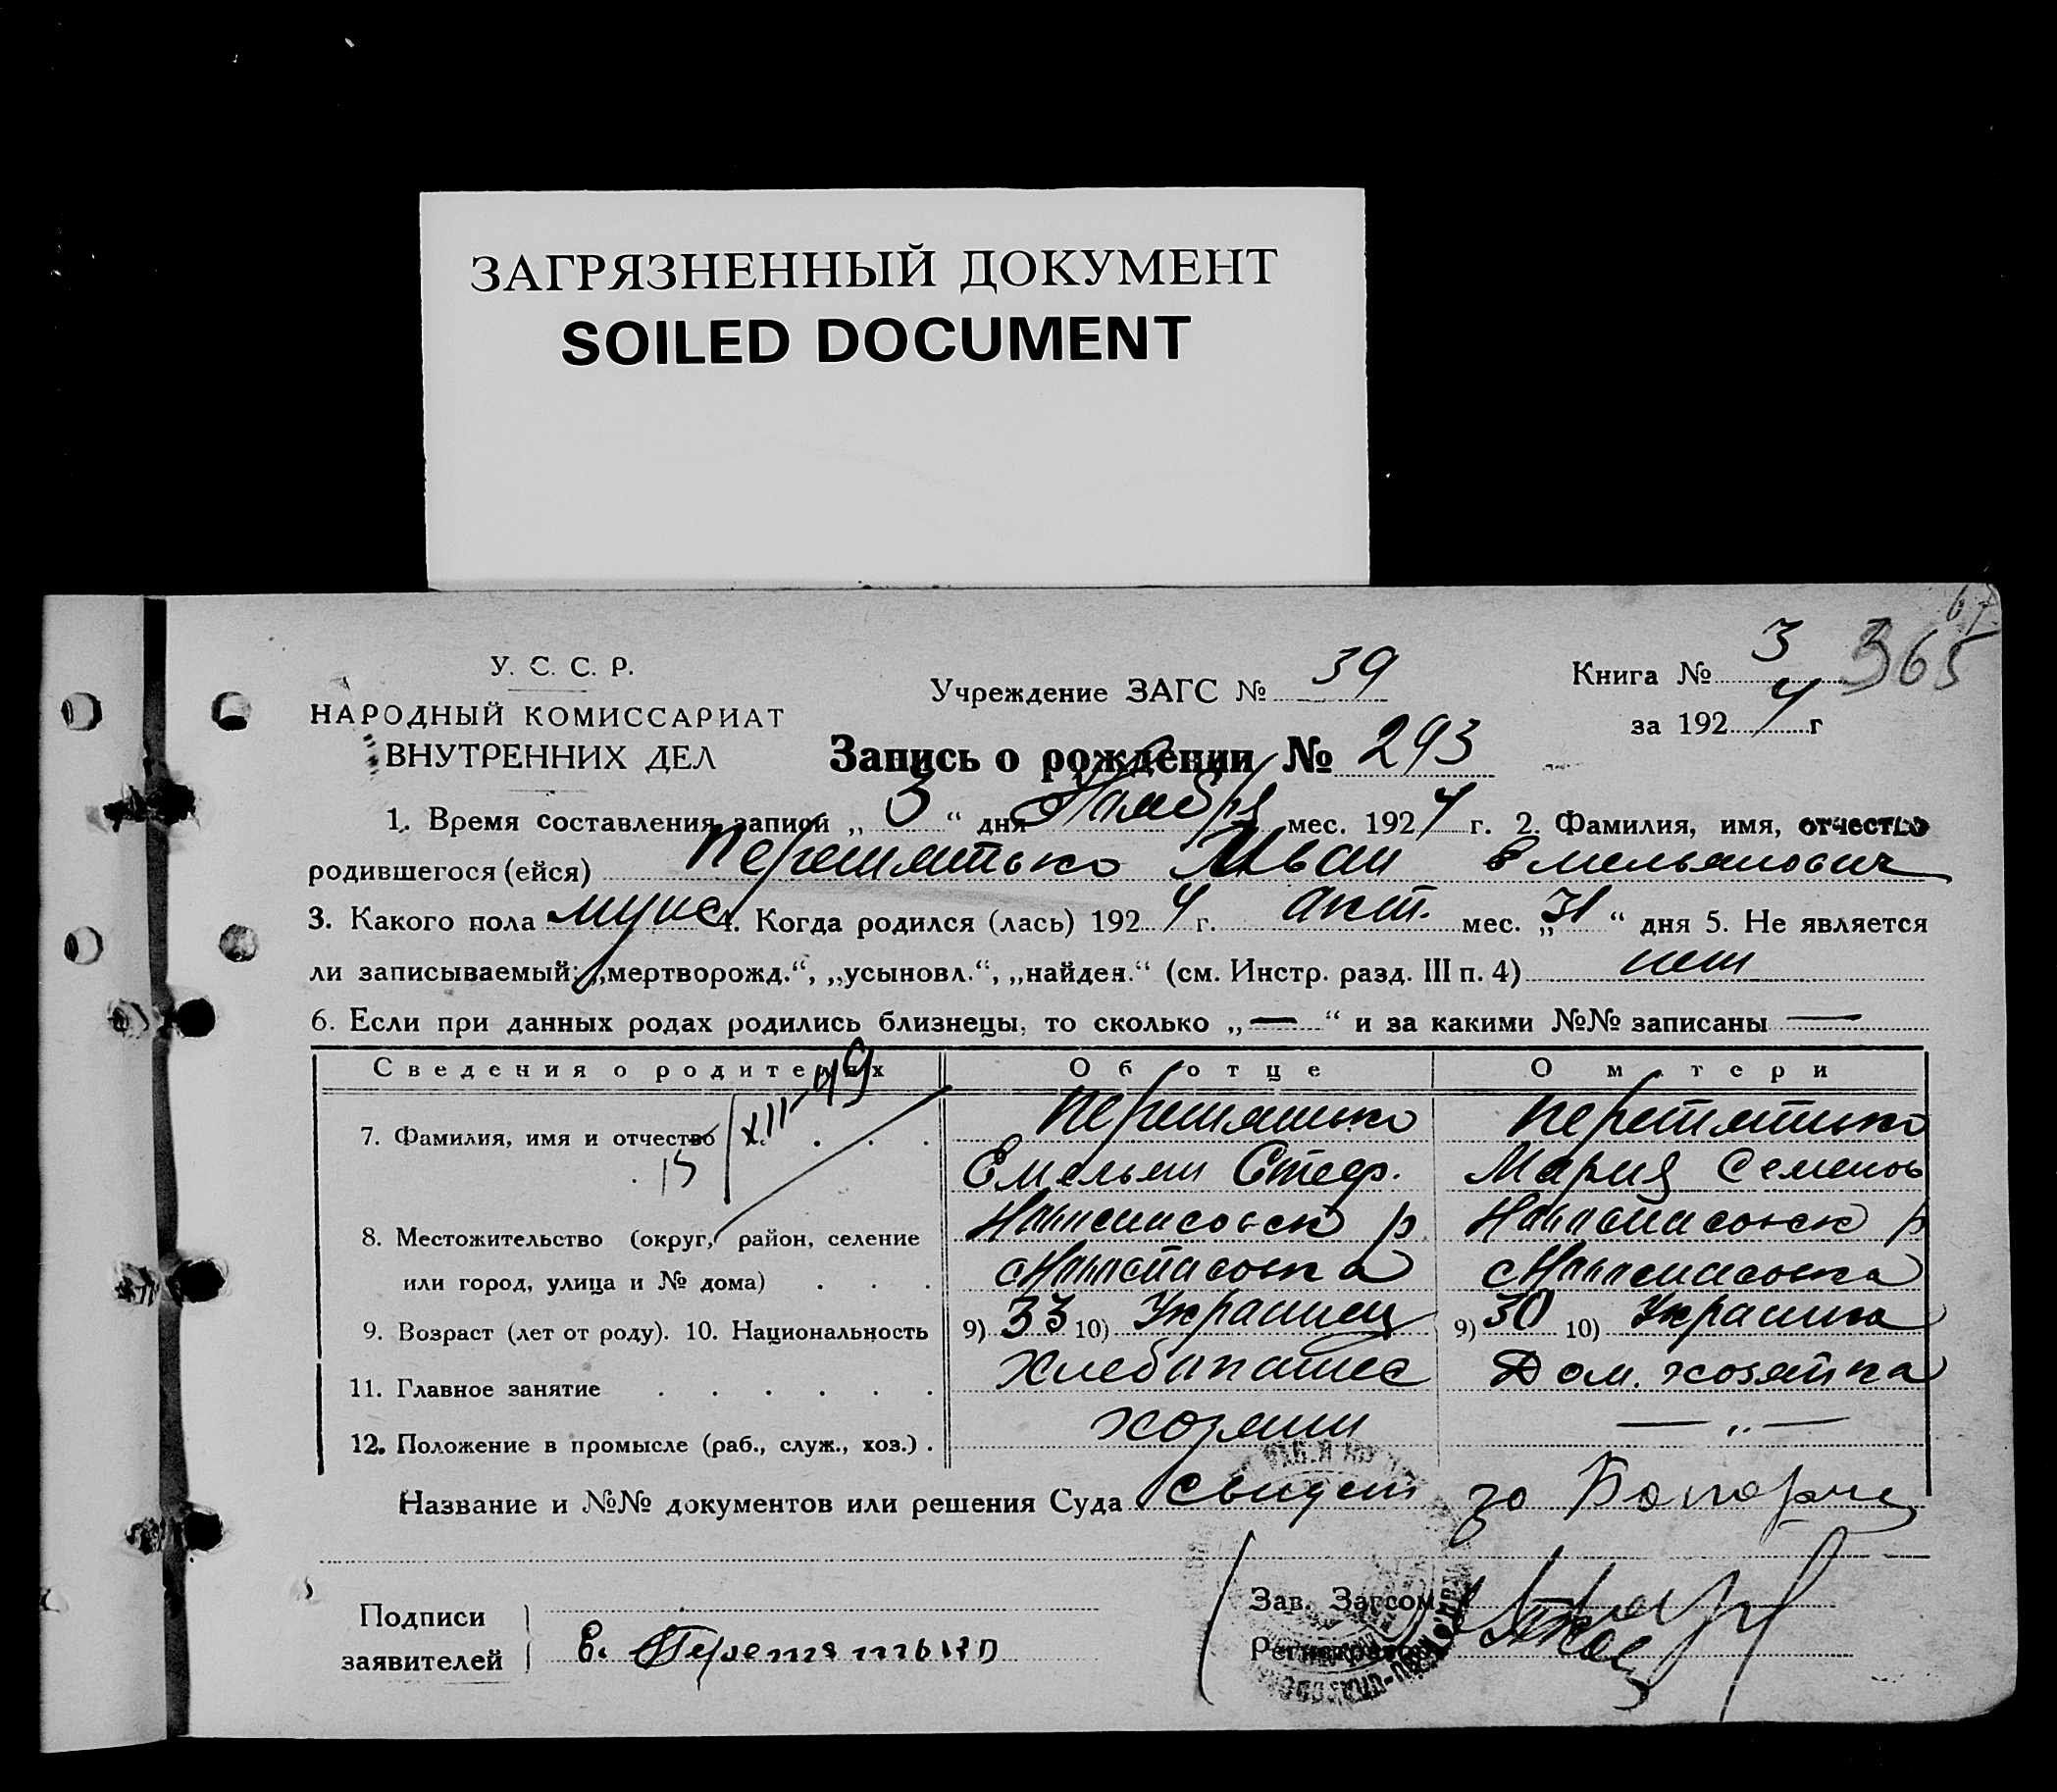 ЗАГРЯЗНЕННЫЙ ДОКУМЕНТ
SOILED DOCUMENT
3 365
У. С. С. Р.
НАРОДНЫЙ КОМИССАРИАТ
ВНУТРЕННИХ ДЕЛ
Учреждение ЗАГС № 39
Книга № 3
за 192 4 г
Запись о рождении № 293
1. Время составления записи „ 3 “ дня Ноября мес. 192 4 г. 2. Фамилия, имя, отчество
родившегося (ейся) Перетятько Иван Емельянович
3. Какого пола мужс 4. Когда родился (лась) 192 4 г. акт. мес. „ 31 “ дня 5. Не является
ли записываемый: „мертворожд.“, „усыновл.“, „найден.“ (см. Инстр. разд. III п. 4) нет
6. Если при данных родах родились близнецы, то сколько „ — “ и за какими №№ записаны —
Сведения о родителях Об отце О матери
7. Фамилия, имя и отчество . . . . Перетятько Перетятько
15/XII-49
Емельян Стеф. Мария Семенов
8. Местожительство (округ, район, селение Новоспасовск р. Новоспасовск р
или город, улица и № дома) . . . с Новоспасовка с Новоспасовка
9. Возраст (лет от роду). 10. Национальность 9) 33 10) Украинец 9) 30 10) Украинка
11. Главное занятие . . . . . . Хлебопашес Дом. хозяйка
12. Положение в промысле (раб., служ., хоз.) . хозяин — „ —
Название и №№ документов или решения Суда свидет
Подписи
заявителей
Е. Перетятько
Зав. Загсом
Регистратор